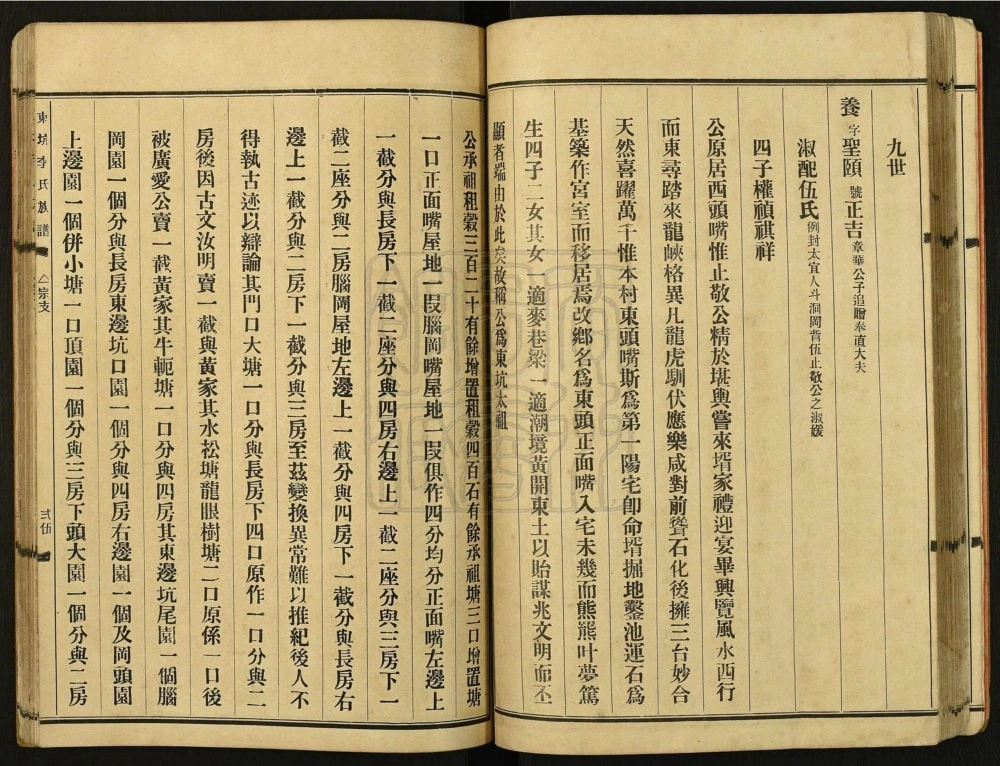 九世
養 字聖頤 號正吉 章華公子追贈奉直大夫
淑配伍氏 例封太宜人斗洞岡背伍止敬公之淑媛
四子權禎祺祥
公原居西頭嘴惟止敬公精於堪輿嘗來壻家禮迎宴畢興覽風水西行
而東尋踏來龍峽格異凡龍虎馴伏應樂咸對前聳石化後擁三台妙合
天然喜躍萬千惟本村東頭嘴斯爲第一陽宅卽命壻掘地鑿池運石爲
基築作宮室而移居焉改鄉名爲東頭正面嘴入宅未幾而熊熊叶夢篤
生四子二女其女一適麥巷梁一適潮境黃開東土以貽謀兆文明而丕
顯者端由於此矣故稱公爲東坑太祖
公承祖租穀三百二十有餘增置租穀四百石有餘承祖塘三口增置塘
一口正面嘴屋地一段腦岡嘴屋地一段俱作四分均分正面嘴左邊上
一截分與長房下一截二座分與四房右邊上一截二座分與三房下一
截二座分與二房腦岡屋地左邊上一截分與四房下一截分與長房右
邊上一截分與二房下一截分與三房至茲變換異常難以推紀後人不
得執古迹以辯論其門口大塘一口分與長房下四口原作一口分與二
房後因古文汝明賣一截與黃家其水松塘龍眼樹塘二口原係一口後
被廣愛公賣一截黃家其牛軛塘一口分與四房其東邊坑尾園一個腦
岡園一個分與長房東邊坑口園一個分與四房右邊園一個及岡頭園
上邊園一個併小塘一口頂園一個分與三房下頭大園一個分與二房
東坑李氏族譜
宗支
弍伍